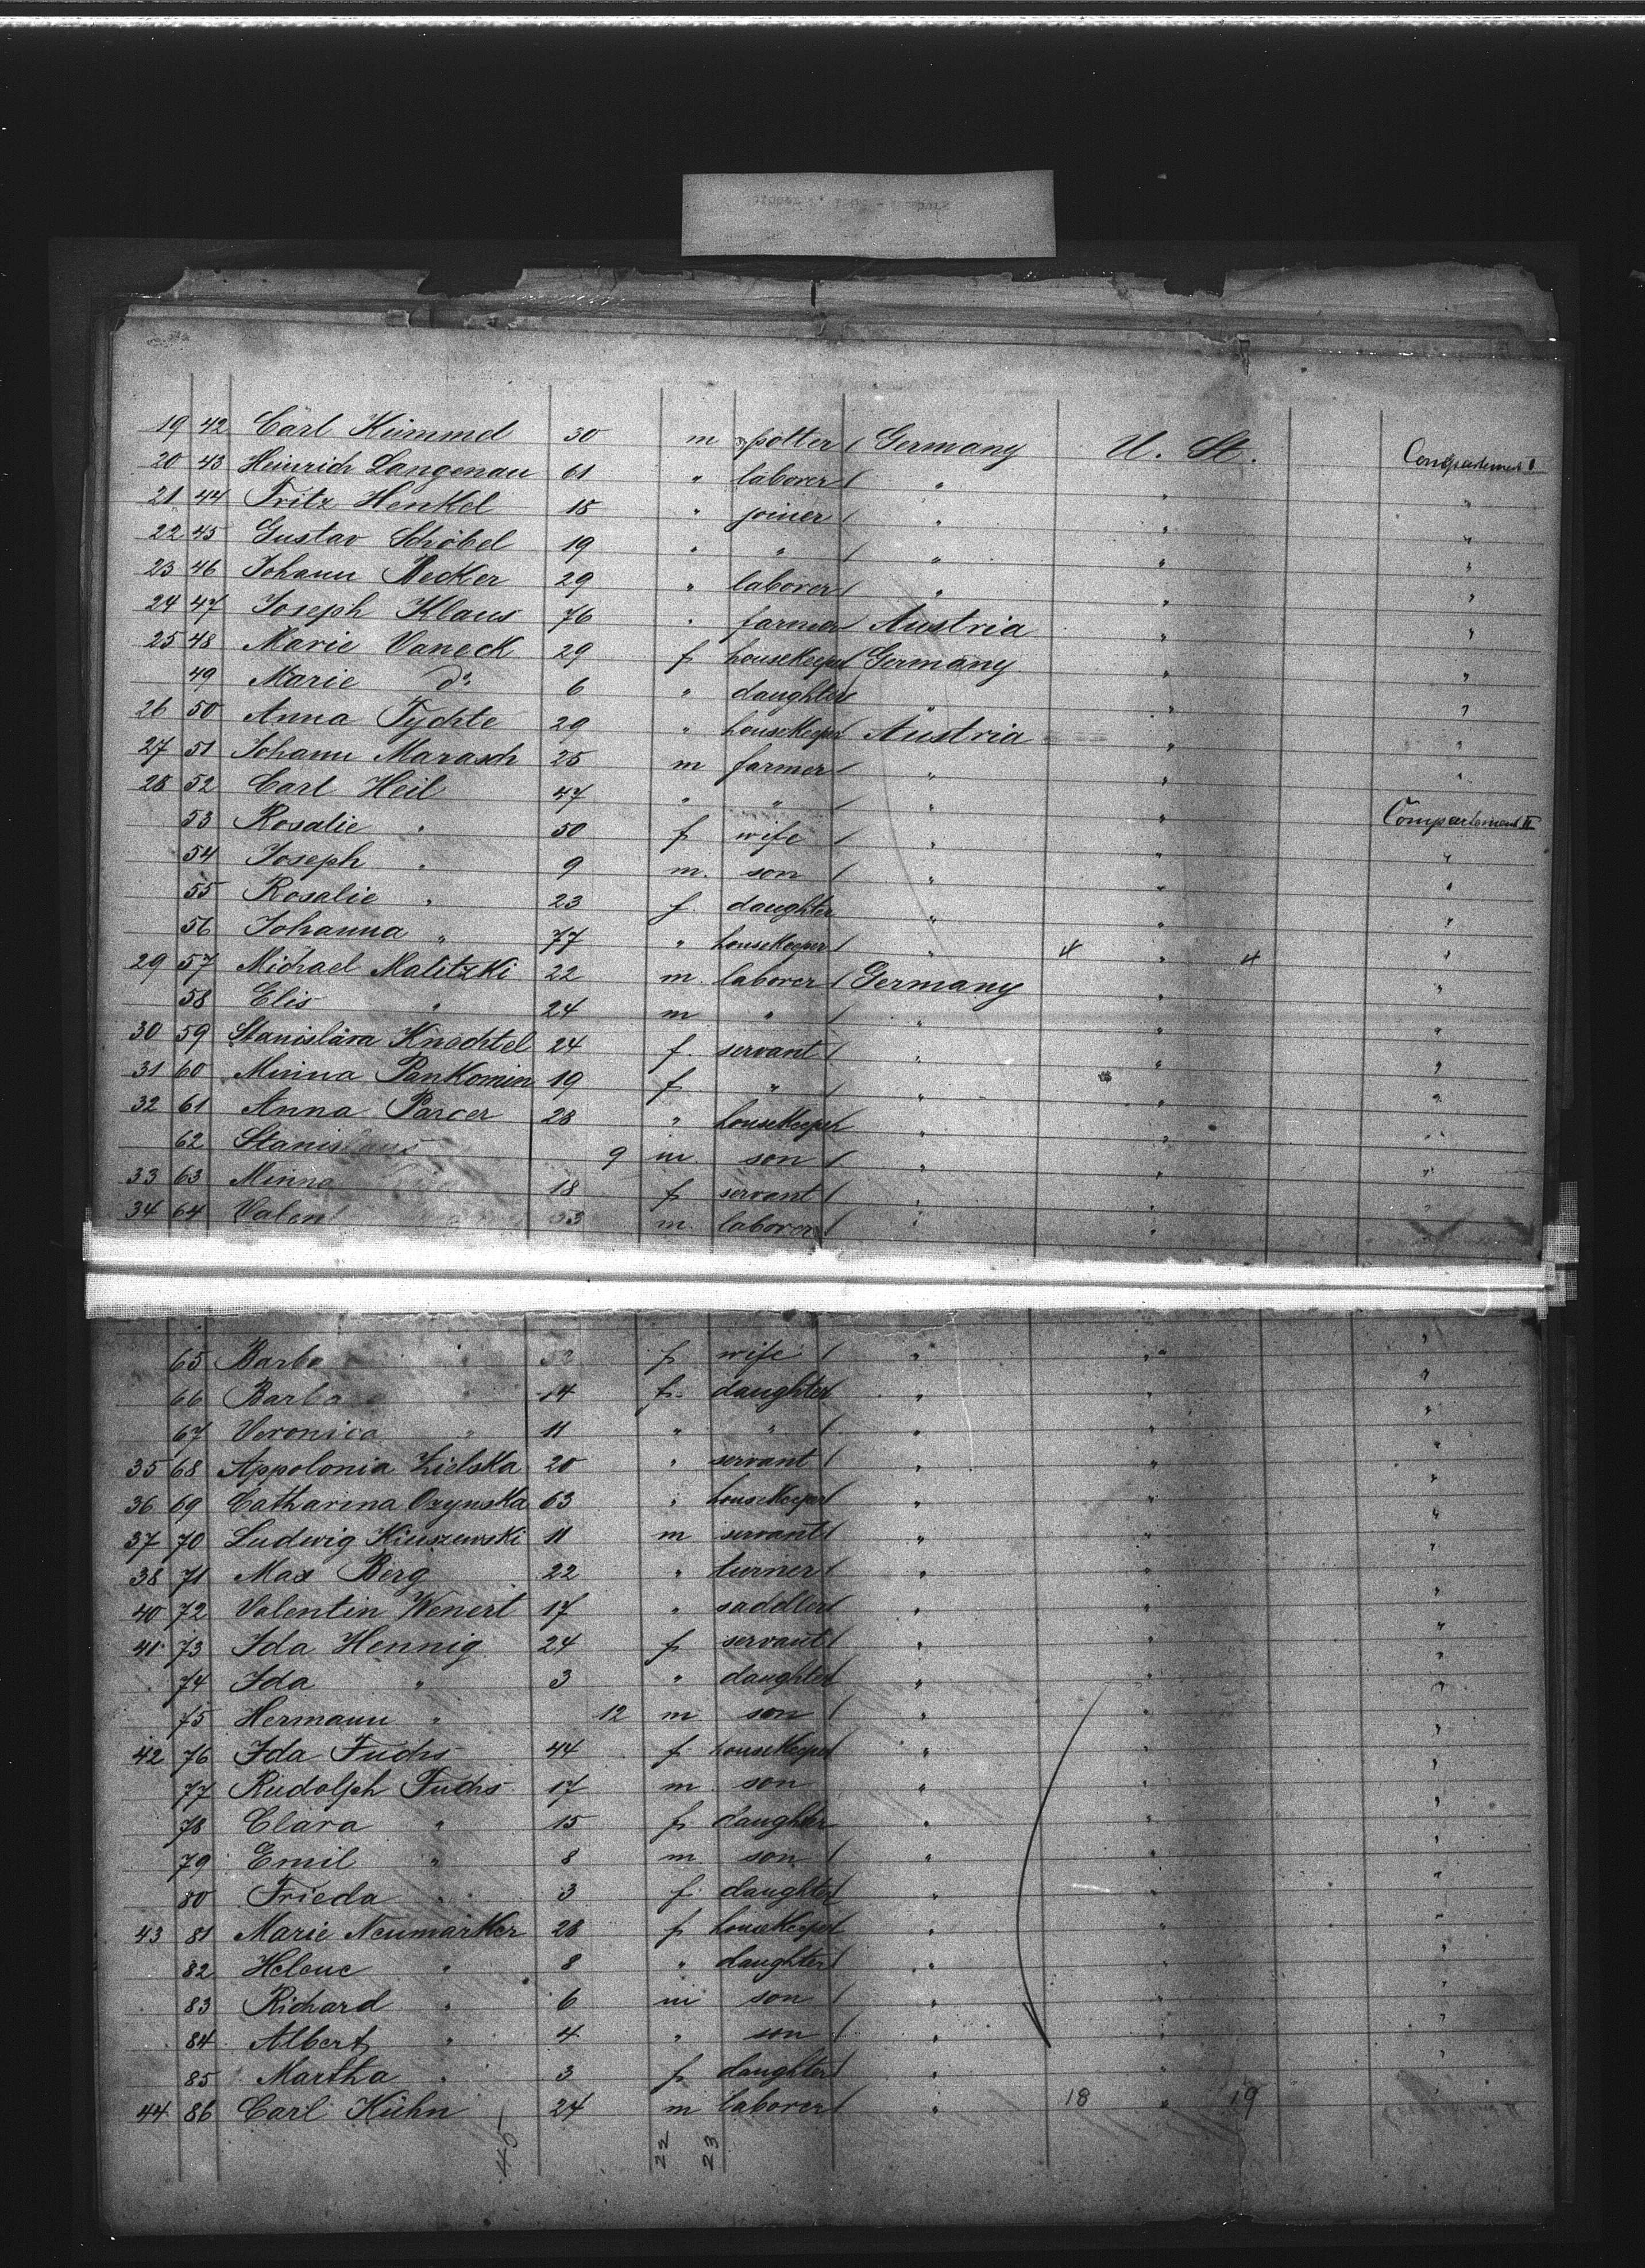 19 42 Carl Kümmel 30 m potter Germany U. St. Compartement I
20 43 Heinrich Langenau 61 " laborer " " "
21 44 Fritz Henkel 18 " joiner " " "
22 45 Gustav Schöbel 19 " " " " "
23 46 Johann Becker 29 " laborer " " "
24 47 Joseph Klaus 76 " farmer Austria " "
25 48 Marie Vaneck 29 f housekeeper Germany " "
49 Marie do 6 " daughter " " "
26 50 Anna Tychte 29 " housekeeper Austria " "
27 51 Johann Marasch 25 m farmer " " "
28 52 Carl Heil 47 " " " " Compartement II
53 Rosalie " 50 f wife " " "
54 Joseph " 9 m. son " " "
55 Rosalie " 23 f. daughter " " "
56 Johanna " 77 " housekeeper " 4 " 4 "
29 57 Michael Malitzki 22 m. laborer Germany " "
58 Elis " 24 m " " " "
30 59 Stanislava Knechtel 24 f. servant " " "
31 60 Minna Pankomin 19 f " " " "
32 61 Anna Parcer 28 " housekeeper " " "
62 Stanislaus 9 m. son " " "
33 63 Minna 18 f servant " " "
34 64 Valent 53 m. laborer " " "
65 Barba " f wife " " "
66 Barba 14 f. daughter " " "
67 Veronica " 11 " " " " "
35 68 Appolonia Zielska 20 " servant " " "
36 69 Catharina Ozynska 63 " housekeeper " " "
37 70 Ludwig Kiuszewski 11 m servant " " "
38 71 Max Berg 22 " turner " " "
40 72 Valentin Wenert 17 " saddler " " "
41 73 Ida Hennig 24 f servant " " "
74 Ida " 3 " daughter " " "
75 Hermann " 12 m son " " "
42 76 Ida Fuchs 44 f. housekeeper " " "
77 Rudolph Fuchs 17 m son " " "
78 Clara " 15 f daughter " " "
79 Emil " 8 m son " " "
80 Frieda " 3 f. daughter " " "
43 81 Marie Neumärker 28 f housekeeper " " "
82 Helene " 8 " daughter " " "
83 Richard " 6 m son " " "
84 Albert " 4 " son " " "
85 Martha " 3 f daughter " " "
44 86 Carl Kühn 24 m laborer " 18 " 19 "
45 22 23